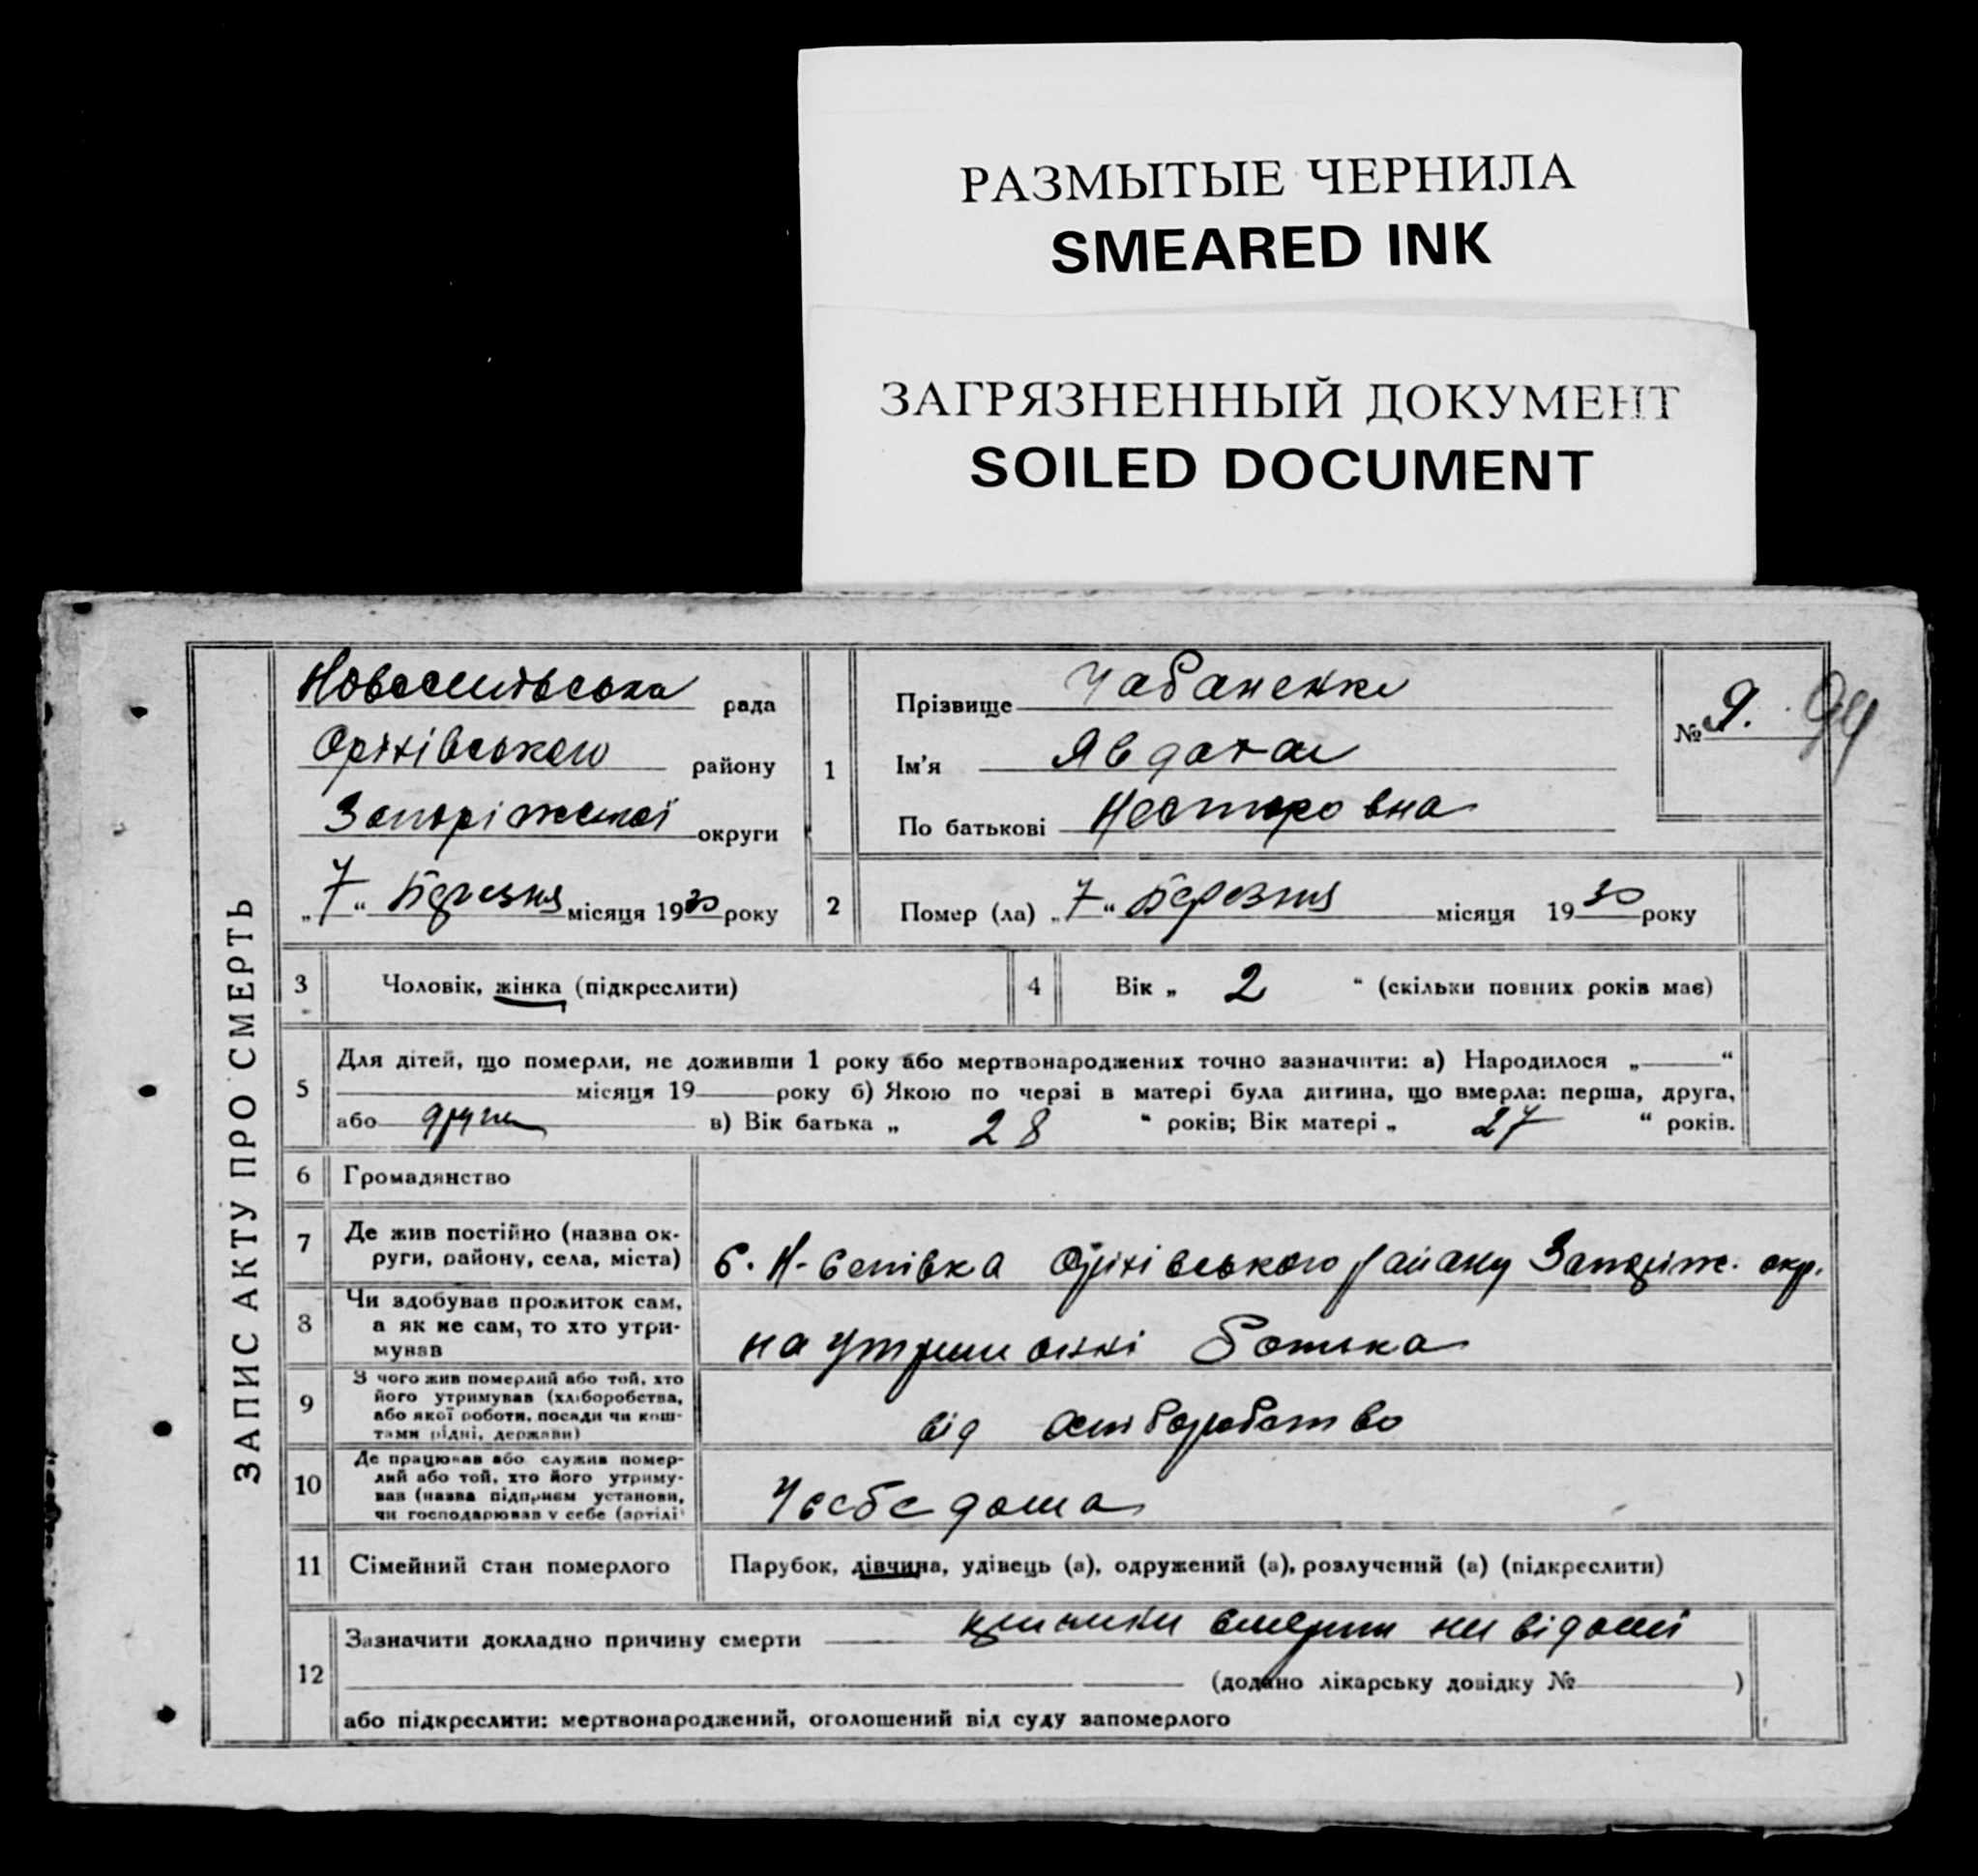 РАЗМЫТЫЕ ЧЕРНИЛА
SMEARED INK
ЗАГРЯЗНЕННЫЙ ДОКУМЕНТ
SOILED DOCUMENT
ЗАПИС АКТУ ПРО СМЕРТЬ
рада
Оріхівського району
Запоріжської округи
„7“ Березня місяця 1930 року
1
Прізвище Чабаненко
Ім'я Явдоха
По батькові Несторовна
№ 9. 94
2 Помер (ла) „7“ Березня місяця 1930 року
3 Чоловік, жінка (підкреслити)
4 Вік „ 2 “ (скільки повних років має)
5 Для дітей, що померли, не доживши 1 року або мертвонароджених точно зазначити: а) Народилося „ “
місяця 19 року б) Якою по черзі в матері була дитина, що вмерла: перша, друга,
або друга в) Вік батька „ 28 “ років; Вік матері „ 27 “ років.
6 Громадянство
7 Де жив постійно (назва ок-
руги, району, села, міста)
с. Н-Селівка Оріхівського району Запоріж. окр.
8 Чи здобував прожиток сам,
а як не сам, то хто утри-
мував
на утриманні батька
9 З чого жив померлий або той, хто
його утримував (хліборобства,
або якої роботи, посади чи кош-
тами рідні, держави)
від хліборобство
10 Де працював або служив помер-
лий або той, хто його утриму-
вав (назва підприєм установи,
чи господарював у себе (артілі
У себе дома
11 Сімейний стан померлого
Парубок, дівчина, удівець (а), одружений (а), розлучений (а) (підкреслити)
12 Зазначити докладно причину смерти смерти не відомі
(додано лікарську довідку № )
або підкреслити: мертвонароджений, оголошений від суду запомерлого